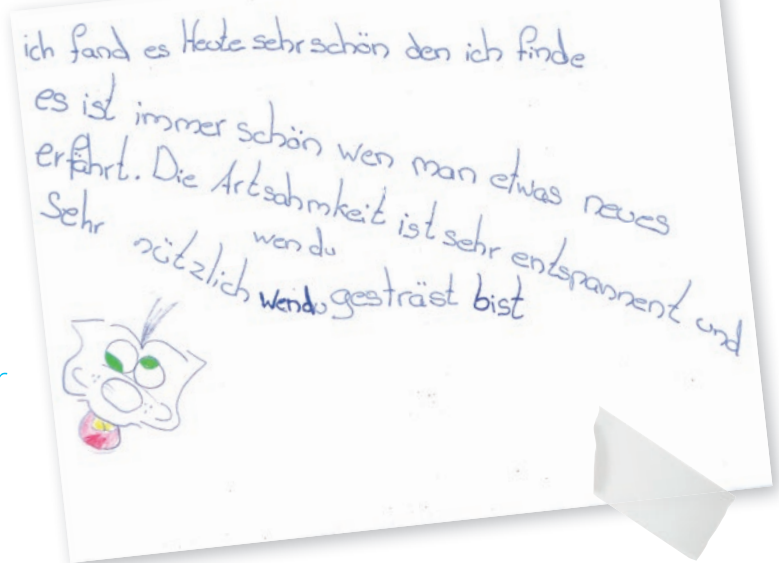 ich fand es Heute sehr schön den ich finde
es ist immer schön wen man etwas neues
erfährt. Die Artsahmkeit ist sehr entspannent und
Sehr nützlich wendu gesträst bist
wen du